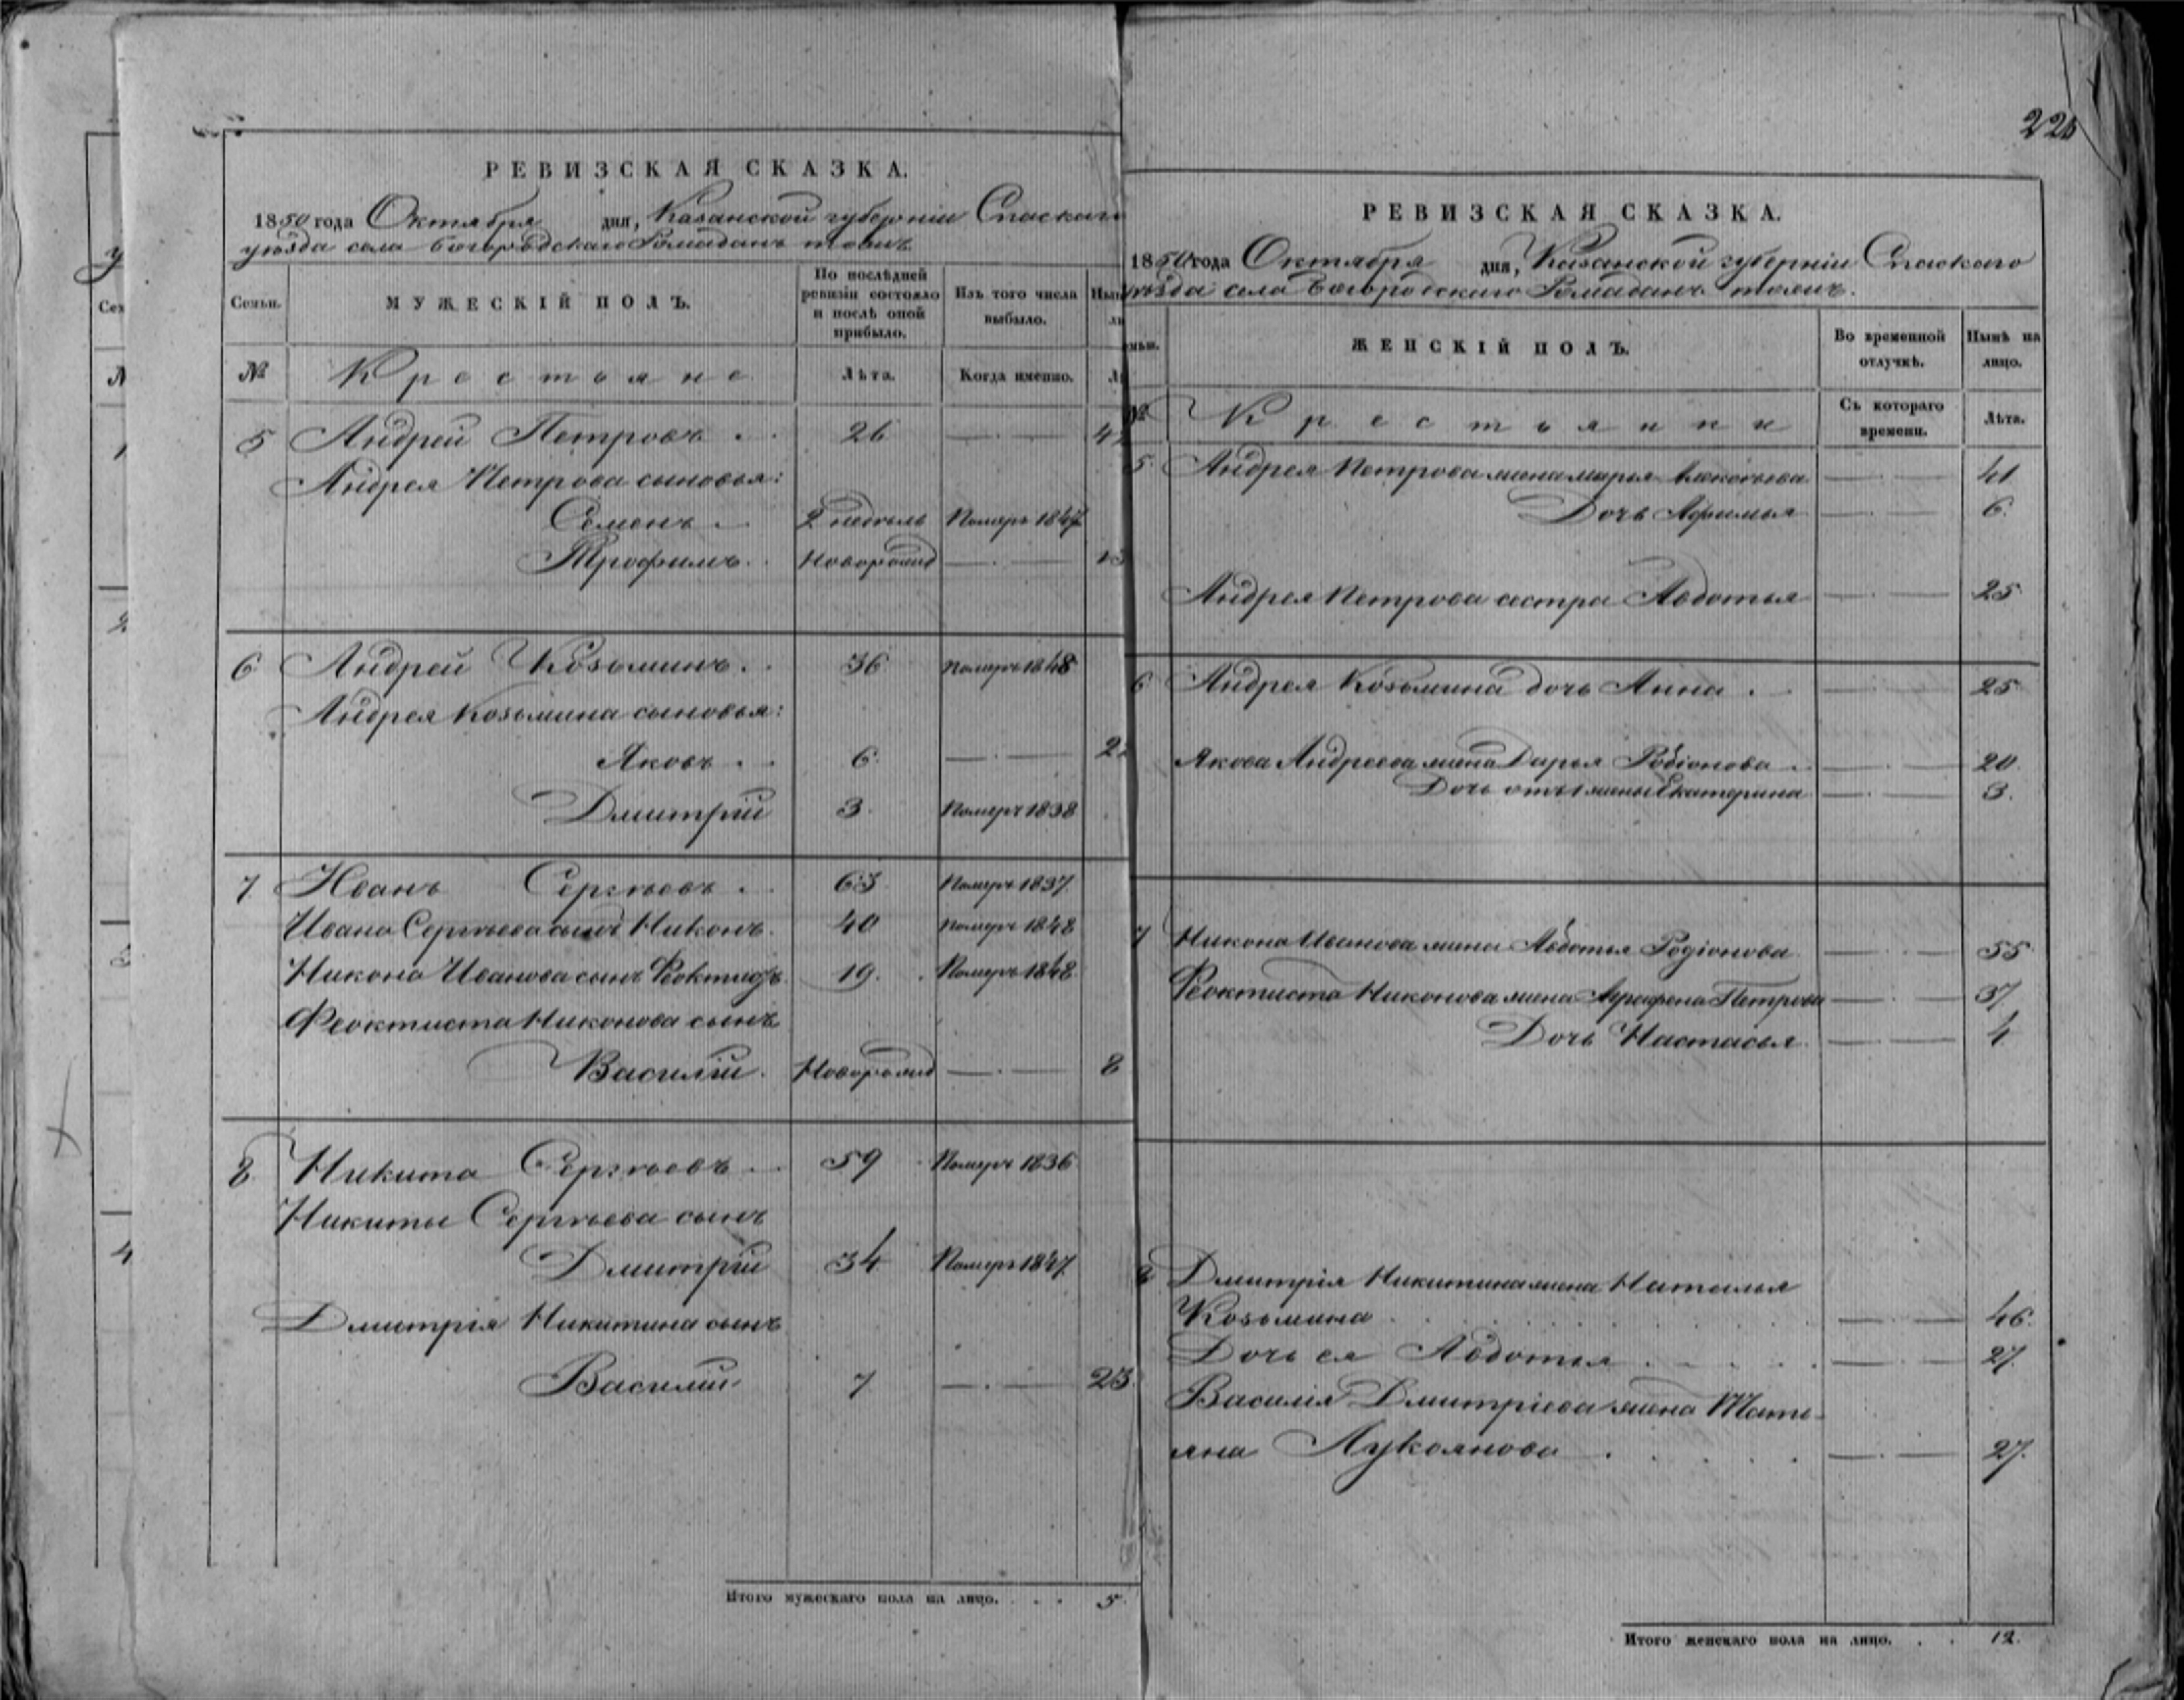 226
РЕВИЗСКАЯ СКАЗКА.
1850 года Октября дня, Казанской губернiи Спаскаго
уѣзда села Богородскаго Ромадань тожъ
Семьи.
МУЖЕСКIЙ ПОЛЪ.
По послѣдней ревизiи состояло и послѣ оной прибыло.
Изъ того числа выбыло.
№
Крестьяне
Лѣта.
Когда именно.
5 Андрей Петровъ 26
Андрея Петрова сыновья:
Семенъ 2 недѣль Померъ 1847
Трофимъ Новорожд 13
6 Андрей Козьминъ 36 померъ 1848
Андрея Козьмина сыновья:
Яковъ 6
Дмитрiй 3 Померъ 1838
7 Иванъ Сергѣевъ 63 Померъ 1837
Ивана Сергѣева сынъ Никонъ 40 померъ 1848
Никона Иванова сынъ Феоктистъ 19 Померъ 1848
Феоктиста Никонова сынъ
Василiй Новорожд 8
8 Никита Сергѣевъ 59 Померъ 1836
Никиты Сергѣева сынъ
Дмитрiй 34 Померъ 1847
Дмитрiя Никитина сынъ
Василiй 7 23
Итого мужескаго пола на лицо. 5
РЕВИЗСКАЯ СКАЗКА.
1850 года Октября дня, Казанской губернiи Спаскаго
уѣзда села Богородскаго Ромаданъ тожъ.
ЖЕНСКIЙ ПОЛЪ.
Во временной отлучкѣ.
Нынѣ на лицо.
№
Крестьянки
Съ котораго времени.
Лѣта.
5 Андрея Петрова жена Марья 41
Дочь Афимья 6
Андрея Петрова сестра Авдотья 25
6 Андрея Козьмина дочь Анна 25
Якова Андреева жена Дарья Родiонова 20
Дочь Екатерина 3
7 Никона Иванова жена Авдотья Родiонова 55
Феоктиста Никонова жена Аграфена Петрова 37
Дочь Настасья 4
8 Дмитрiя Никитина жена Наталья
Козьмина 46
Дочь ея Авдотья 27
Василiя Дмитрiева жена Тать-
яна Лукоянова 27
Итого женскаго пола на лицо. 12